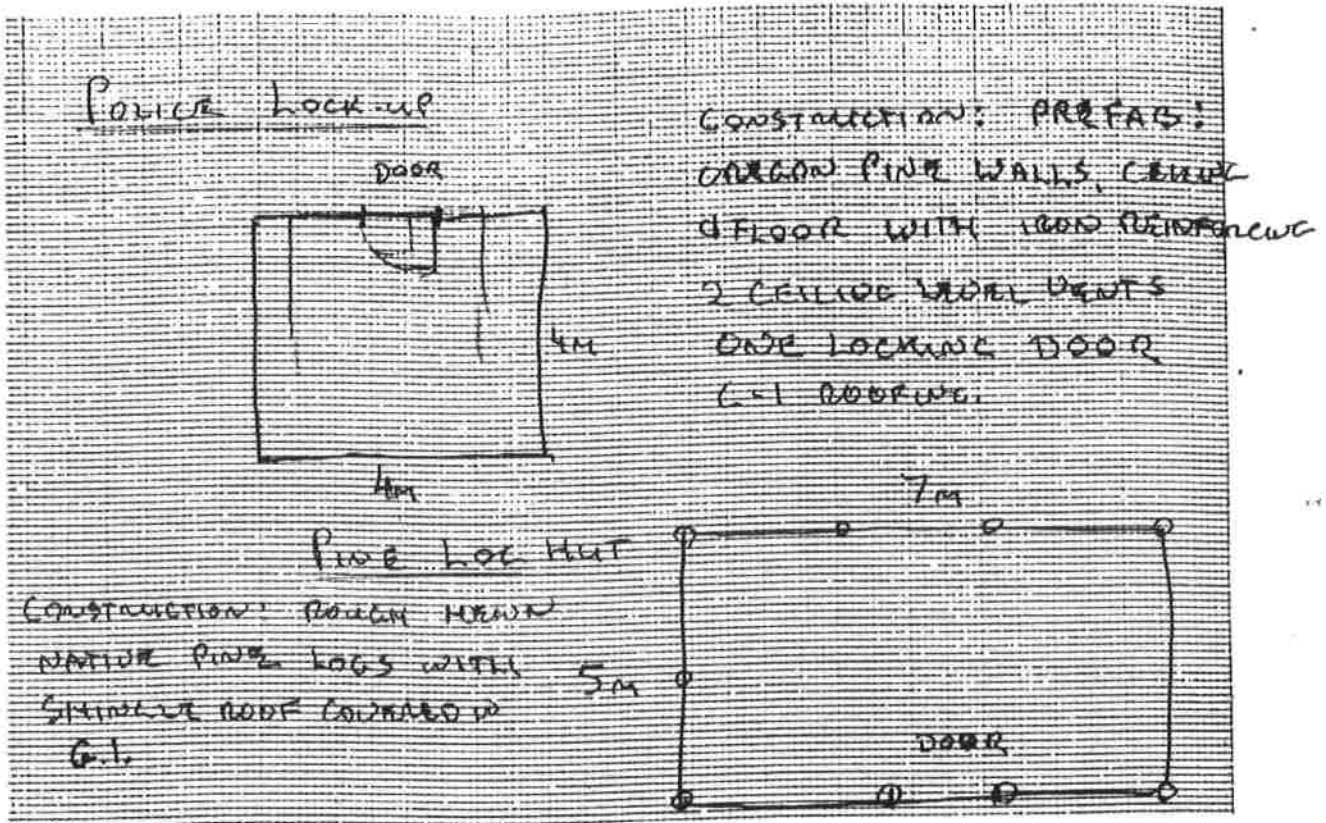 POLICE LOCK-UP
DOOR
4M
4M
CONSTRUCTION: PREFAB:
OREGON PINE WALLS, CEILING
& FLOOR WITH IRON REINFORCING
2 CEILING LEVEL VENTS
ONE LOCKING DOOR
ROOFING.
PINE LOG HUT
CONSTRUCTION: ROUGH HEWN
NATIVE PINE LOGS WITH
SHINGLE ROOF COVERED IN
G.I.
7M
5M
DOOR